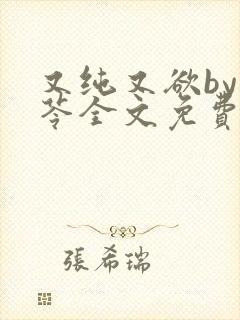 又纯又欲by
苓全文免費
張希瑞